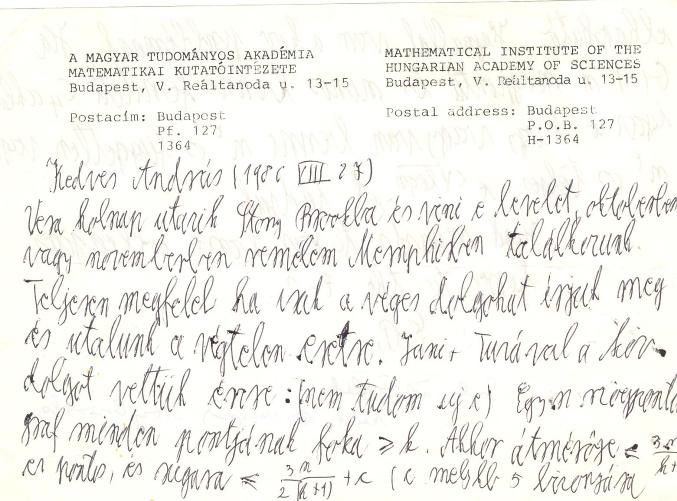 A MAGYAR TUDOMÁNYOS AKADÉMIA
MATEMATIKAI KUTATÓINTÉZETE
Budapest, V. Reáltanoda u. 13-15
Postacím: Budapest
Pf. 127
1364
MATHEMATICAL INSTITUTE OF THE
HUNGARIAN ACADEMY OF SCIENCES
Budapest, V. Reáltanoda u. 13-15
Postal address: Budapest
P.O.B. 127
H-1364
Kedves András (198 VIII 27)
Vera holnap utazik Stony Brookba és viszi e levelet, októberben
vagy novemberben remélem Memphisben találkozunk.
Teljesen megfelel ha csak a véges dolgokat írjuk meg
és utalunk a végtelen esetre. Jani + Tuzával a köv.
dolgot vettük észre: (nem tudom új e) Egy n szögpontú
gráf minden pontjának foka ≥ k. Akkor átmérője ≤ 3n
ez pontos, és sugara ≤ 3n / 2(k+1) + c (c melykb 5 bizonyára